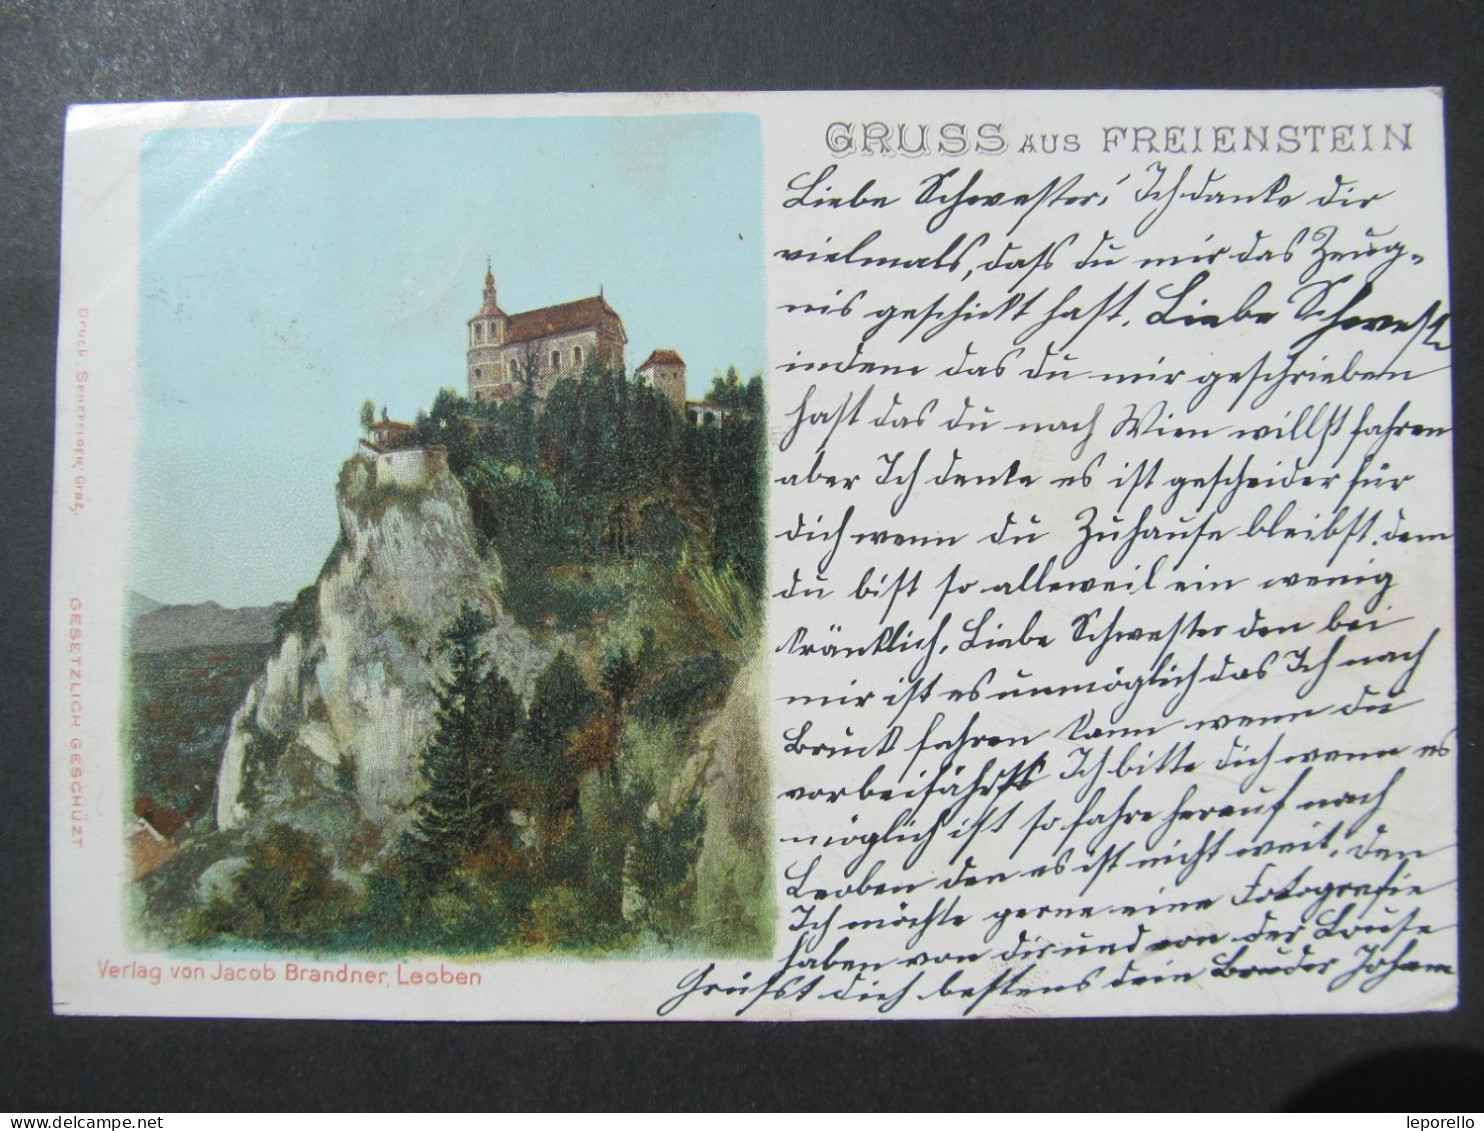 GRUSS AUS FREIENSTEIN
Liebe Schwester! Ich danke dir
vielmals, daß du mir das Zeug-
nis geschickt hast. Liebe Schwest
indem das du mir geschrieben
hast das du nach Wien willst fahren
aber Ich denke es ist gescheider für
dich wenn du Zuhause bleibst. dem
du bist so alleweil ein wenig
kränklich. Liebe Schwester den bei
mir ist es unmöglich das Ich nach
Bruck fahren kann wenn du
vorbeifährst Ich bitte dich wenn es
möglich ist so fahre herauf nach
Leoben den es ist nicht weit. den
Ich möchte gerne eine Fotografie
haben von dir und von der Louise
Grüßt dich bestens dein Bruder Johann
Druck "Senefelder" Graz.
GESETZLICH GESCHÜZT
Verlag von Jacob Brandner, Leoben
leporello